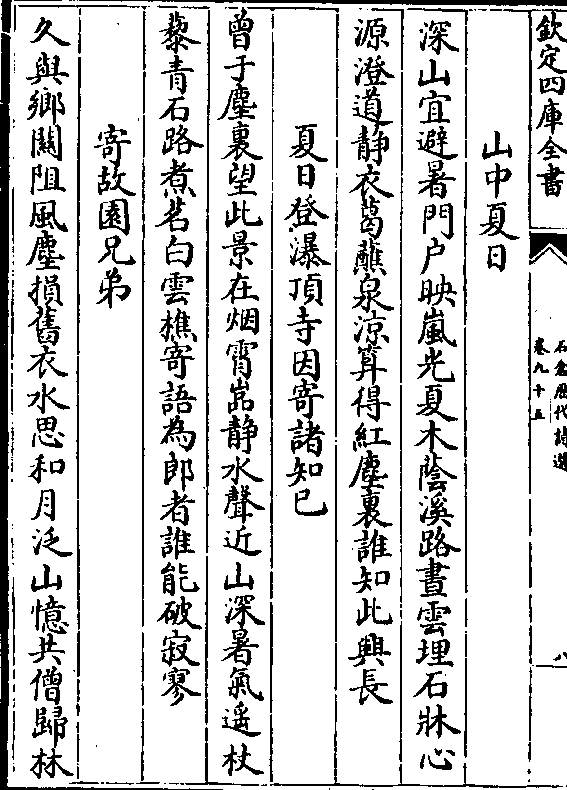 欽定四庫全書
石倉歷代詩選
卷九十五
八
山中夏日
深山宜避暑門户映嵐光夏木蔭溪路晝雲埋石牀心
源澄道静衣葛蘸泉凉算得紅塵裏誰知此興長
夏日登瀑頂寺因寄諸知已
曾于塵裏望此景在烟霄嵓静水聲近山深暑氣遥杖
藜青石路煮茗白雲樵寄語為郎者誰能破寂寥
寄故園兄弟
久與鄉關阻風塵損舊衣水思和月泛山憶共僧歸林